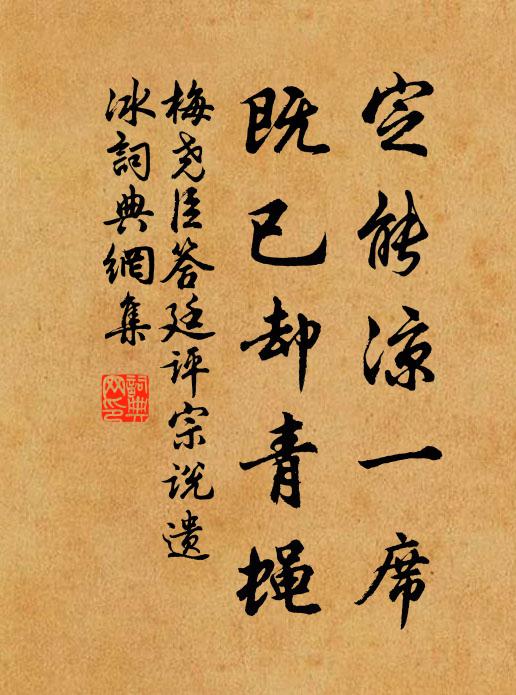 定能涼一席
既已却青蝇
梅尧臣答廷评宗说遗
冰詞典網集
詞典
网印